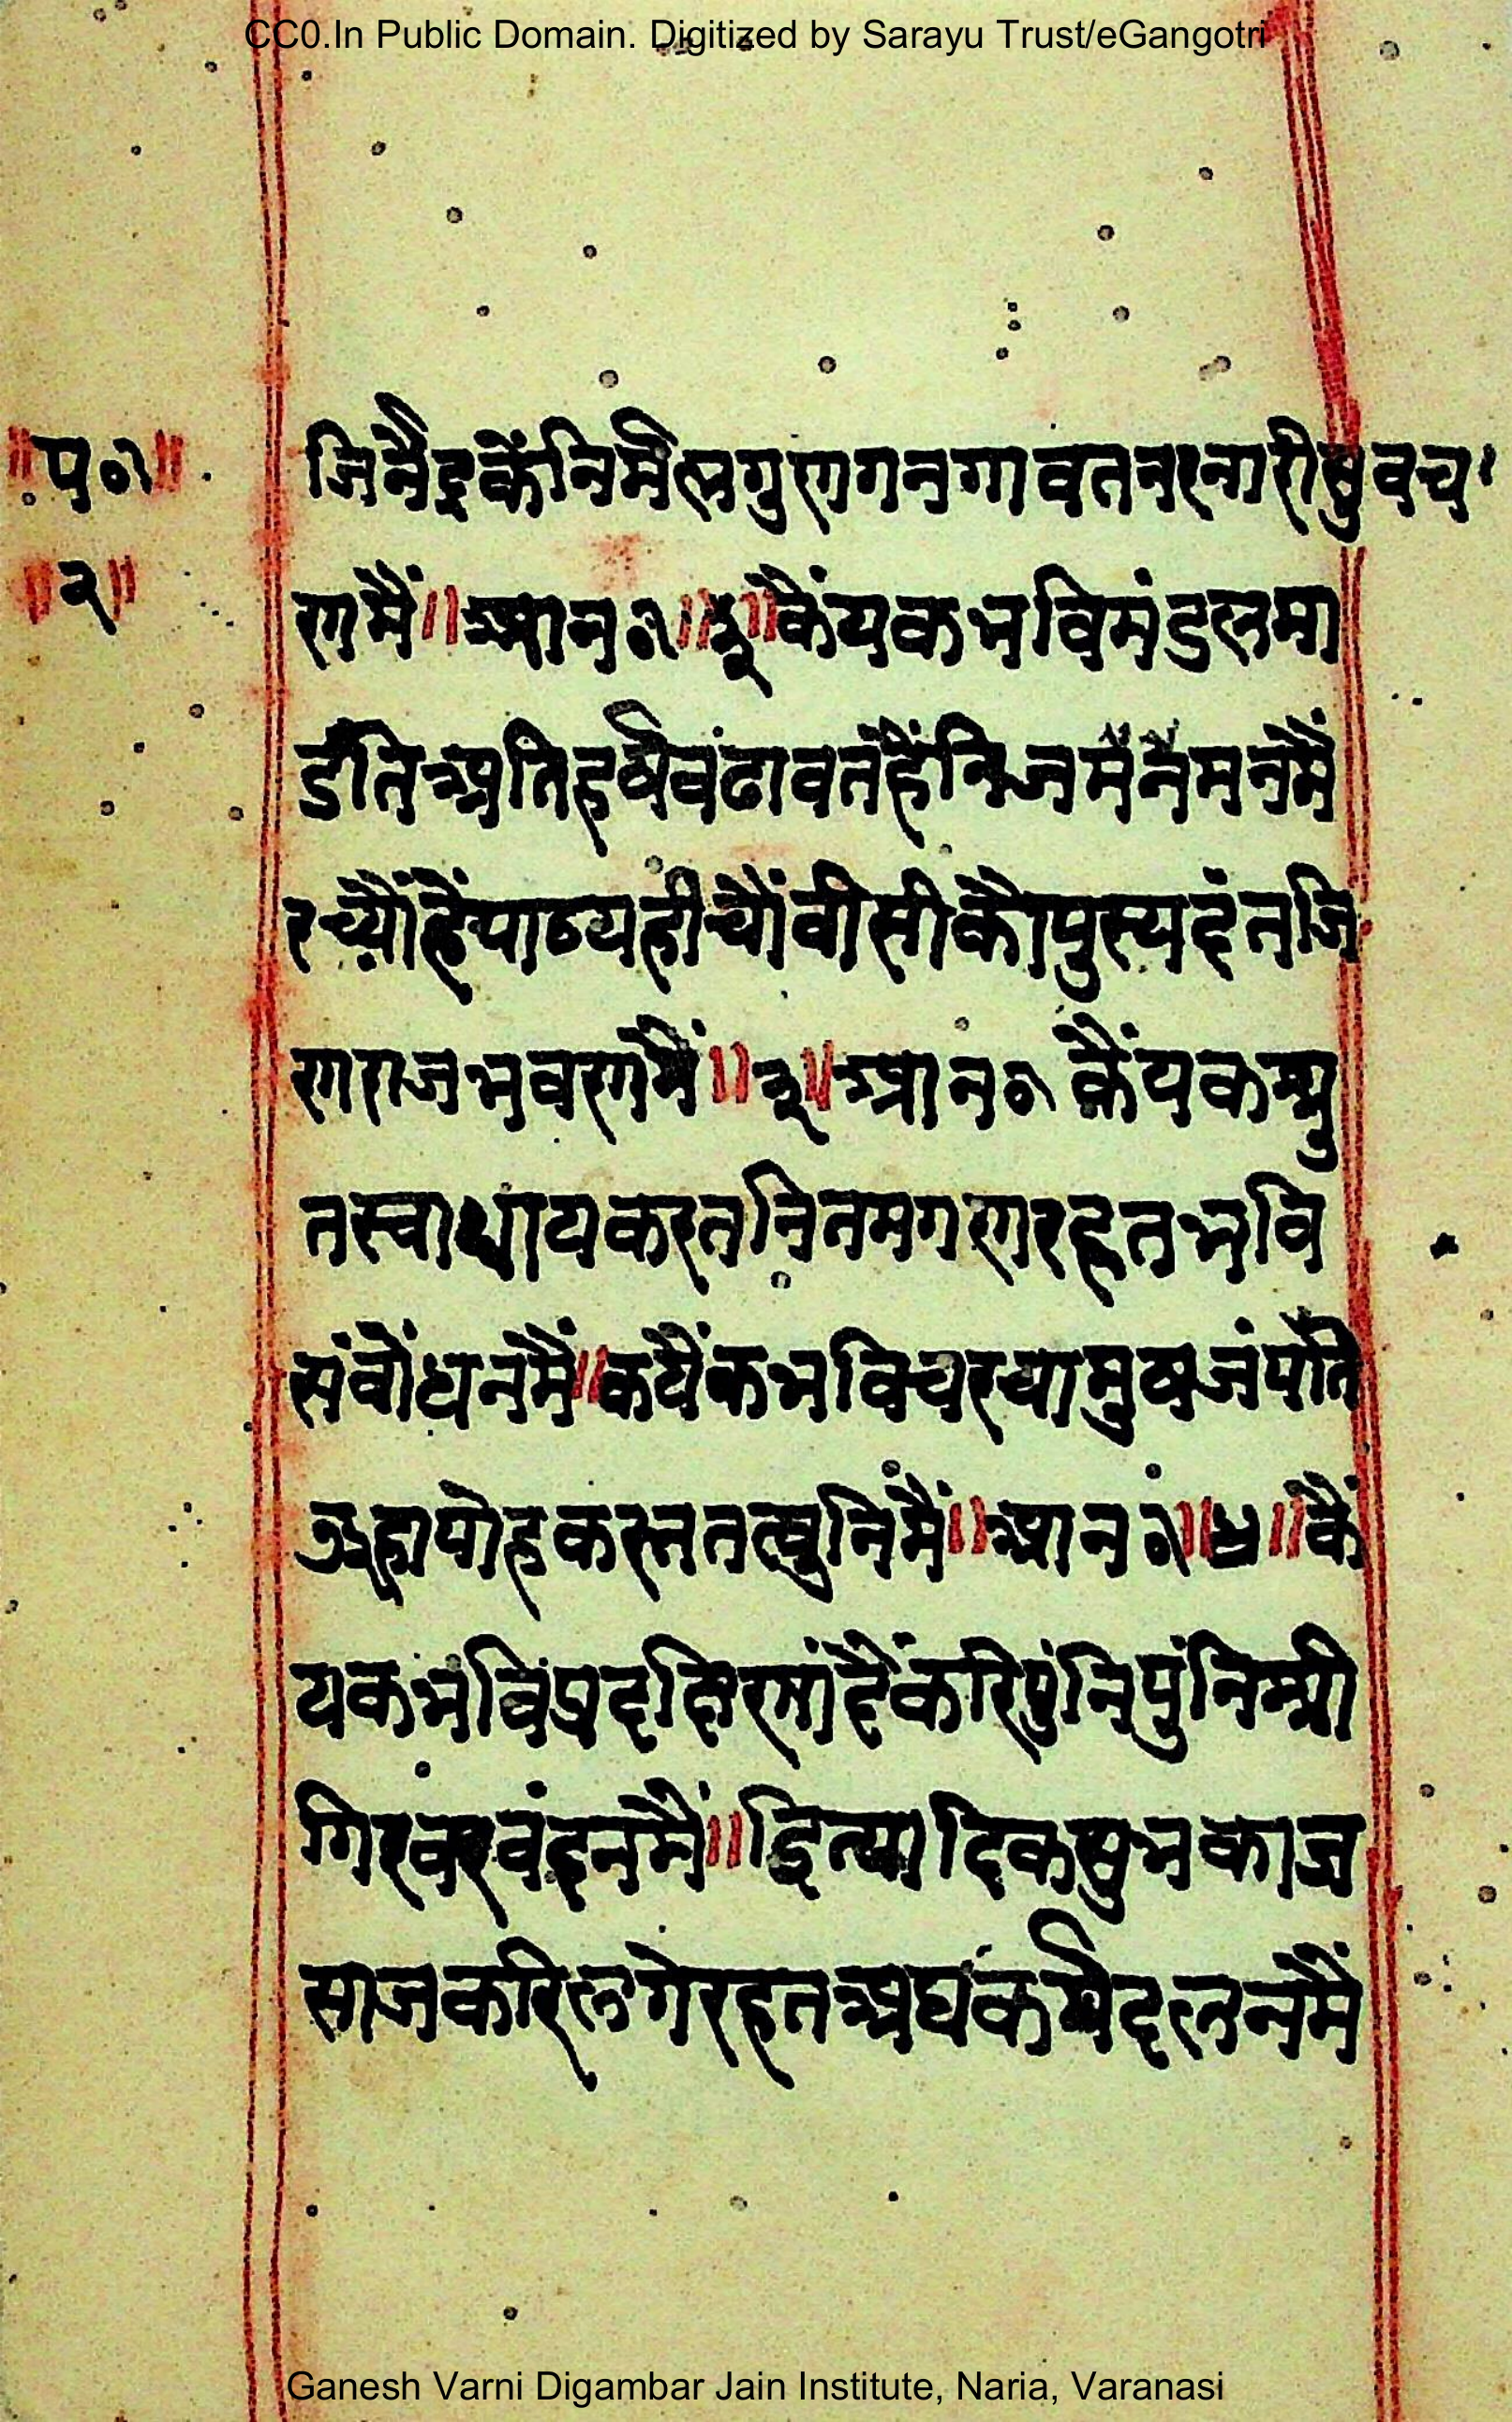 CC0.In Public Domain. Digitized by Sarayu Trust/eGangotri
॥प०१॥
॥२॥
जिनेंद्रकेंनिर्मलगुणगनगावतनरनारीसुवच
णमैं॥आन१॥२॥कैंयकभविमंडलमा
डंतिअतिहर्षवंढावतंहैंनिजमनमनमैं
रच्यौंहैंपाठयहीचौंवीसीकौपुस्यदंतजि
णराजभवणमैं॥३॥आन१कैंयकश्रु
तस्वाध्यायकरतनितमगणरहतभवि
संवोधनमैं॥कयैंकभविचरचामुषजंपति
ऊहापोहकरततत्वुनिंमैं॥आन१॥४॥कैं
यकभविंप्रदक्षिणांदैंकरिपुंनिपुंनिश्री
गिरवरवंदनमैं॥इित्यादिकसुभकाज
साजकरिलगेरहतअघकर्मदलनमैं
Ganesh Varni Digambar Jain Institute, Naria, Varanasi